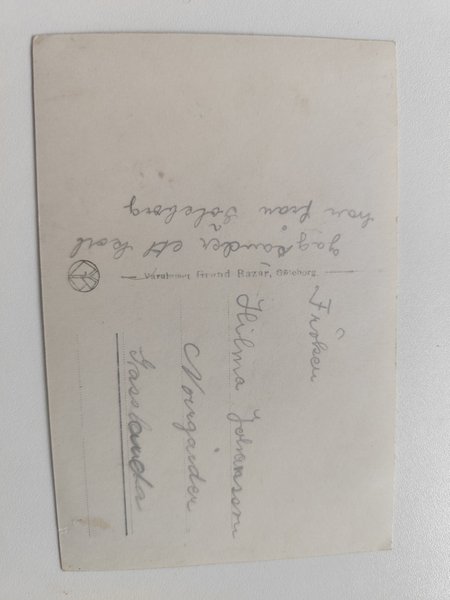 jag sänder ett kort
han från Göteborg
Varuhuset Grand Bazar, Göteborg.
Fröken
Hilma Johansson
Norrgårder
Gasslanda